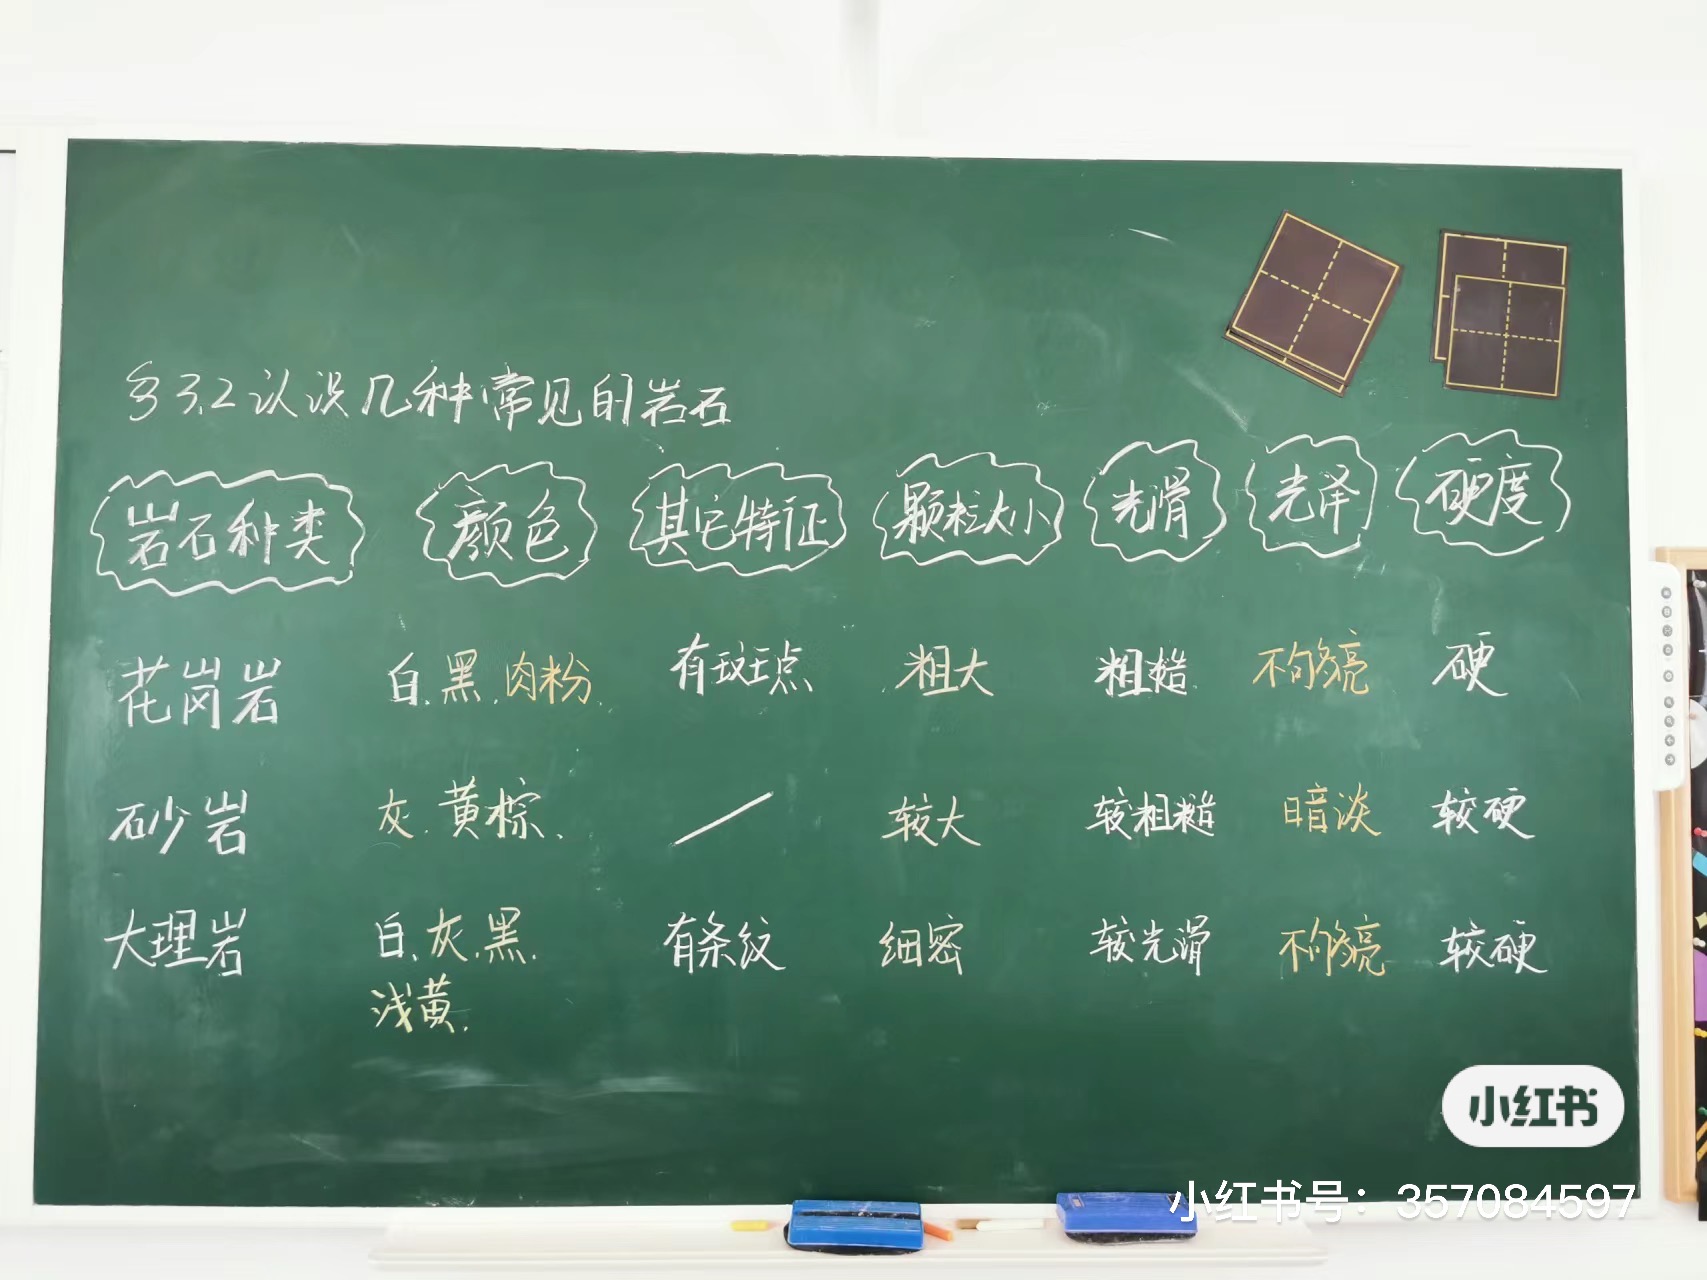 §3.2 认识几种常见的岩石
岩石种类 颜色 其它特征 颗粒大小 光滑 光泽 硬度
花岗岩 白、黑、肉粉、 有斑点 粗大 粗糙 不够亮 硬
砂岩 灰、黄棕、 / 较大 较粗糙 暗淡 较硬
大理岩 白、灰、黑、 有条纹 细密 较光滑 不够亮 较硬
浅黄、
小红书
小红书号：357084597